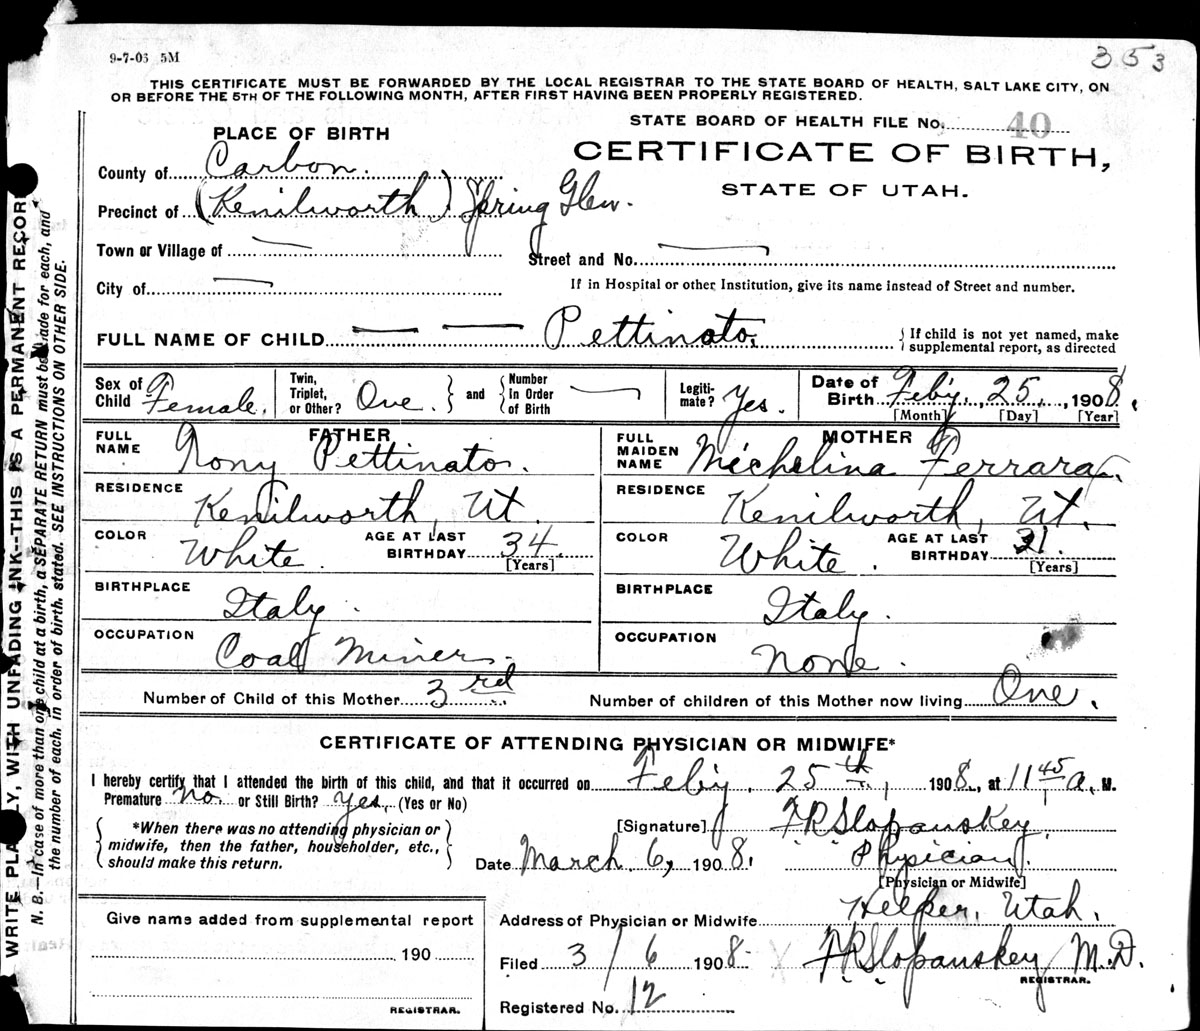 9-7-06 5M
353
THIS CERTIFICATE MUST BE FORWARDED BY THE LOCAL REGISTRAR TO THE STATE BOARD OF HEALTH, SALT LAKE CITY, ON
OR BEFORE THE 5TH OF THE FOLLOWING MONTH, AFTER FIRST HAVING BEEN PROPERLY REGISTERED.
STATE BOARD OF HEALTH FILE No. 40
PLACE OF BIRTH
CERTIFICATE OF BIRTH,
STATE OF UTAH.
County of Carbon.
Precinct of (Kenilworth) Spring Glen.
Town or Village of —
Street and No. —
City of —
If in Hospital or other Institution, give its name instead of Street and number.
FULL NAME OF CHILD — — Pettinato.
{ If child is not yet named, make
supplemental report, as directed
Sex of Child Female.
Twin, Triplet, or Other? One. } and { Number In Order of Birth —
Legiti-mate? Yes.
Date of Birth Feby. 25, 1908.
[Month] [Day] [Year]
FATHER
FULL NAME Tony Pettinato.
RESIDENCE Kenilworth, Ut.
COLOR White. AGE AT LAST BIRTHDAY 34. [Years]
BIRTHPLACE Italy.
OCCUPATION Coal Miner.
MOTHER
FULL MAIDEN NAME Michelina Ferrara.
RESIDENCE Kenilworth, Ut.
COLOR White. AGE AT LAST BIRTHDAY 21. [Years]
BIRTHPLACE Italy.
OCCUPATION None.
Number of Child of this Mother 3rd
Number of children of this Mother now living One.
CERTIFICATE OF ATTENDING PHYSICIAN OR MIDWIFE*
I hereby certify that I attended the birth of this child, and that it occurred on Feby. 25th, 1908, at 11 45 a. M.
Premature no. or Still Birth? Yes. (Yes or No)
{ *When there was no attending physician or
midwife, then the father, householder, etc.,
should make this return. }
[Signature] F R Slopanskey.
Date March 6, 1908. Physician.
[Physician or Midwife]
Address of Physician or Midwife Helper, Utah.
Give name added from supplemental report
190
REGISTRAR.
Filed 3/6 1908. F R Slopanskey M.D.
REGISTRAR.
Registered No. 12
WRITE PLAINLY, WITH UNFADING INK--THIS IS A PERMANENT RECORD
N. B.—In case of more than one child at a birth, a SEPARATE RETURN must be made for each, and
the number of each, in order of birth, stated. SEE INSTRUCTIONS ON OTHER SIDE.